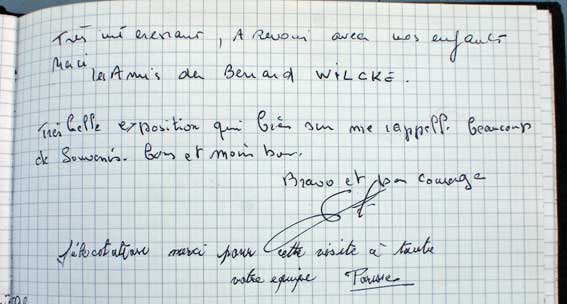 Très intéressant, A revoir avec nos enfants
Merci
Les Amis de Bernard WILCKE.
Très belle exposition qui bien sur me rappelle beaucoup
de Souvenirs. bons et moins bon.
Bravo et bon courage
merci pour cette visite à toute
votre equipe